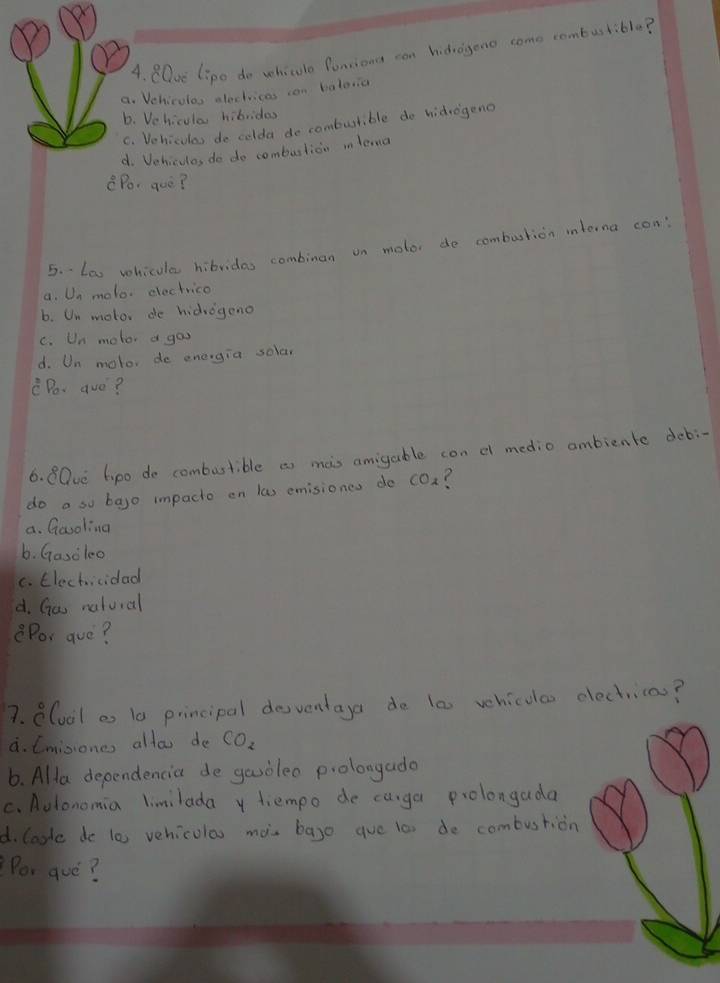 4. ¿Qué tipo de vehiculo funciona con hidrógeno como combustible?
a. Vehiculos electricos con bateria
b. Vehiculos hibridos
c. Vehiculos de celda de combustible de hidrógeno
d. Vehiculos de de combustión interna
¿Por qué?
5.- Los vehiculos hibridos combinan un motor de combustión interna con:
a. Un motor electrico
b. Un motor de hidrógeno
c. Un motor a gas
d. Un motor de energia solar
¿Por qué?
6. ¿Qué tipo de combustible es más amigable con el medio ambiente debi-
do a su bajo impacto en las emisiones de CO2?
a. Gasolina
b. Gasóleo
c. Electricidad
d. Gas natural
¿Por qué?
7. ¿Cuál es la principal desventaja de los vehiculos electricos?
a. Emisiones altas de CO2
b. Alta dependencia de gasóleo prolongado
c. Autonomia limitada y tiempo de carga prolongada
d. Coste de los vehiculos más bajo que los de combustión
¿Por qué?